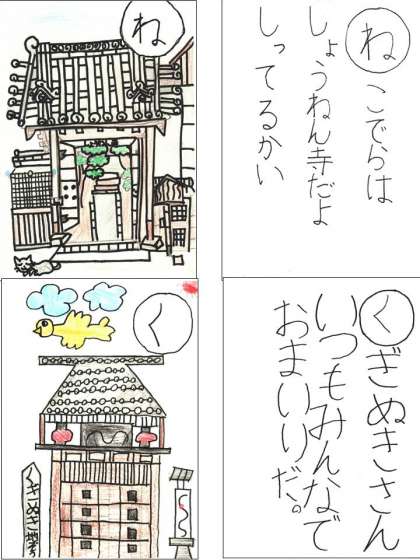 ね
ね
こでらは
しょうねん寺だよ
しってるかい
く
くぎぬき地ぞう
く
ぎぬきさん
いつもみんなで
おまいりだ。